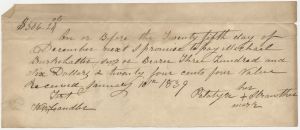 $306.24
On or Before the Twenty fifth day of
December next I promise to pay Michael
or Bearer Three Hundred and
Six Dollars & twenty four cents for Value
Received January 10th 1839
Test his
+
mark